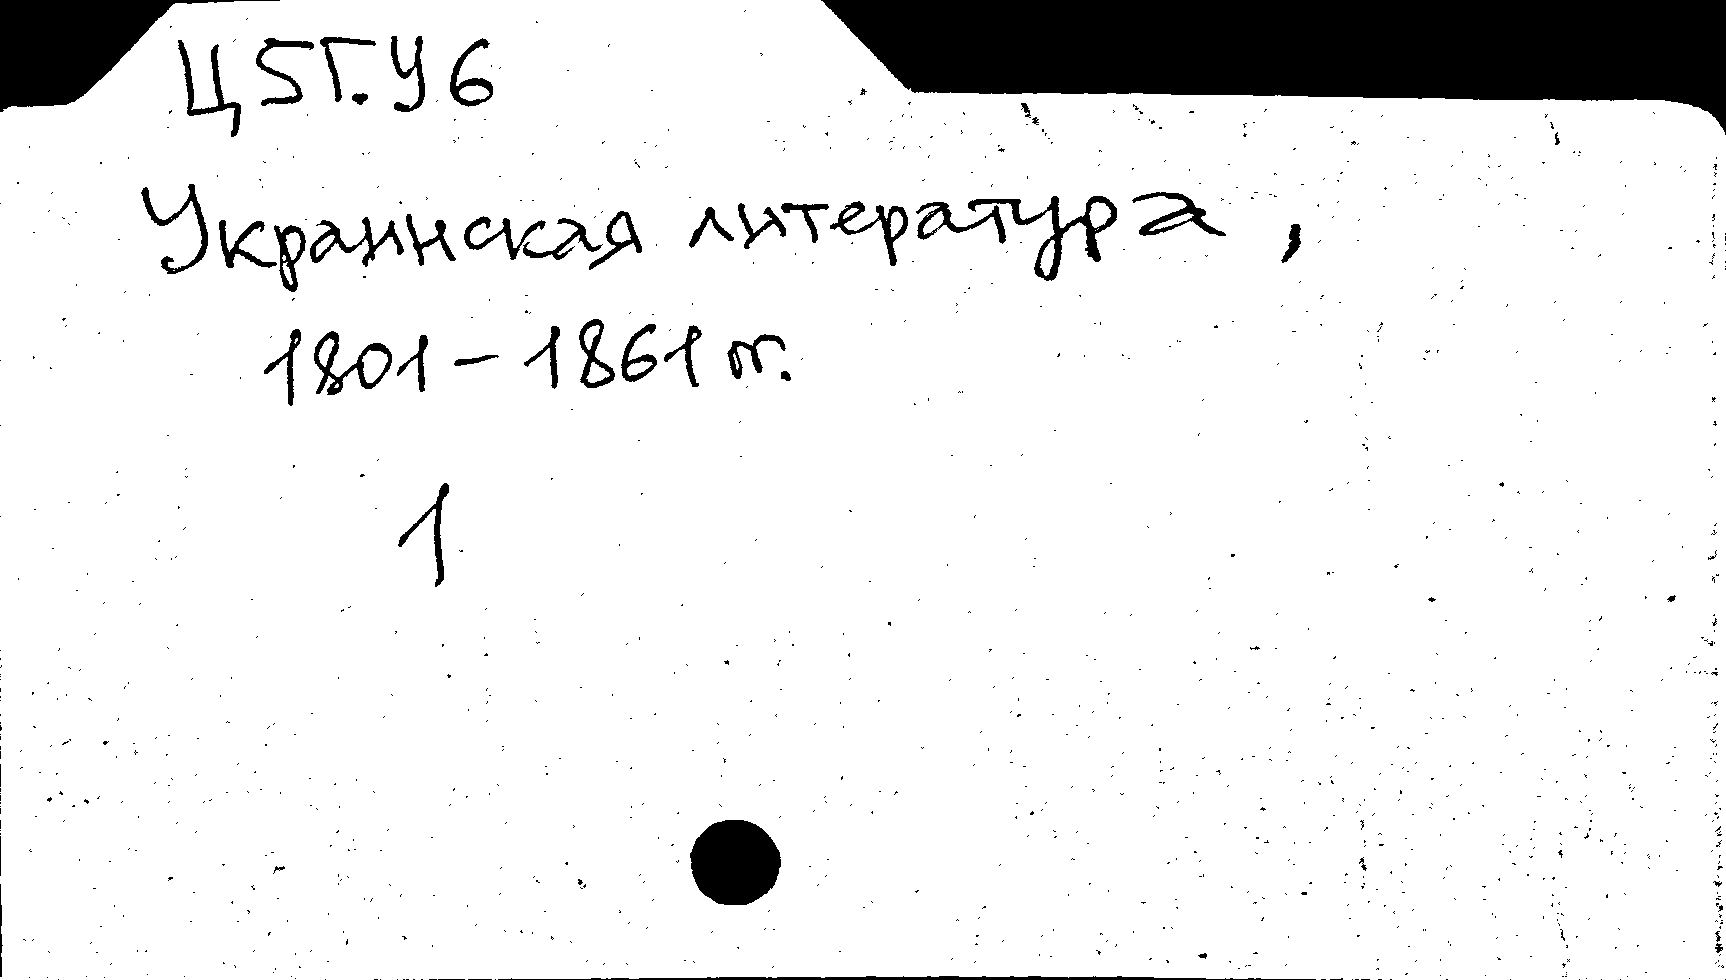 Ц5Г.У6
Украинская литература,
1801-1861 гг.
1